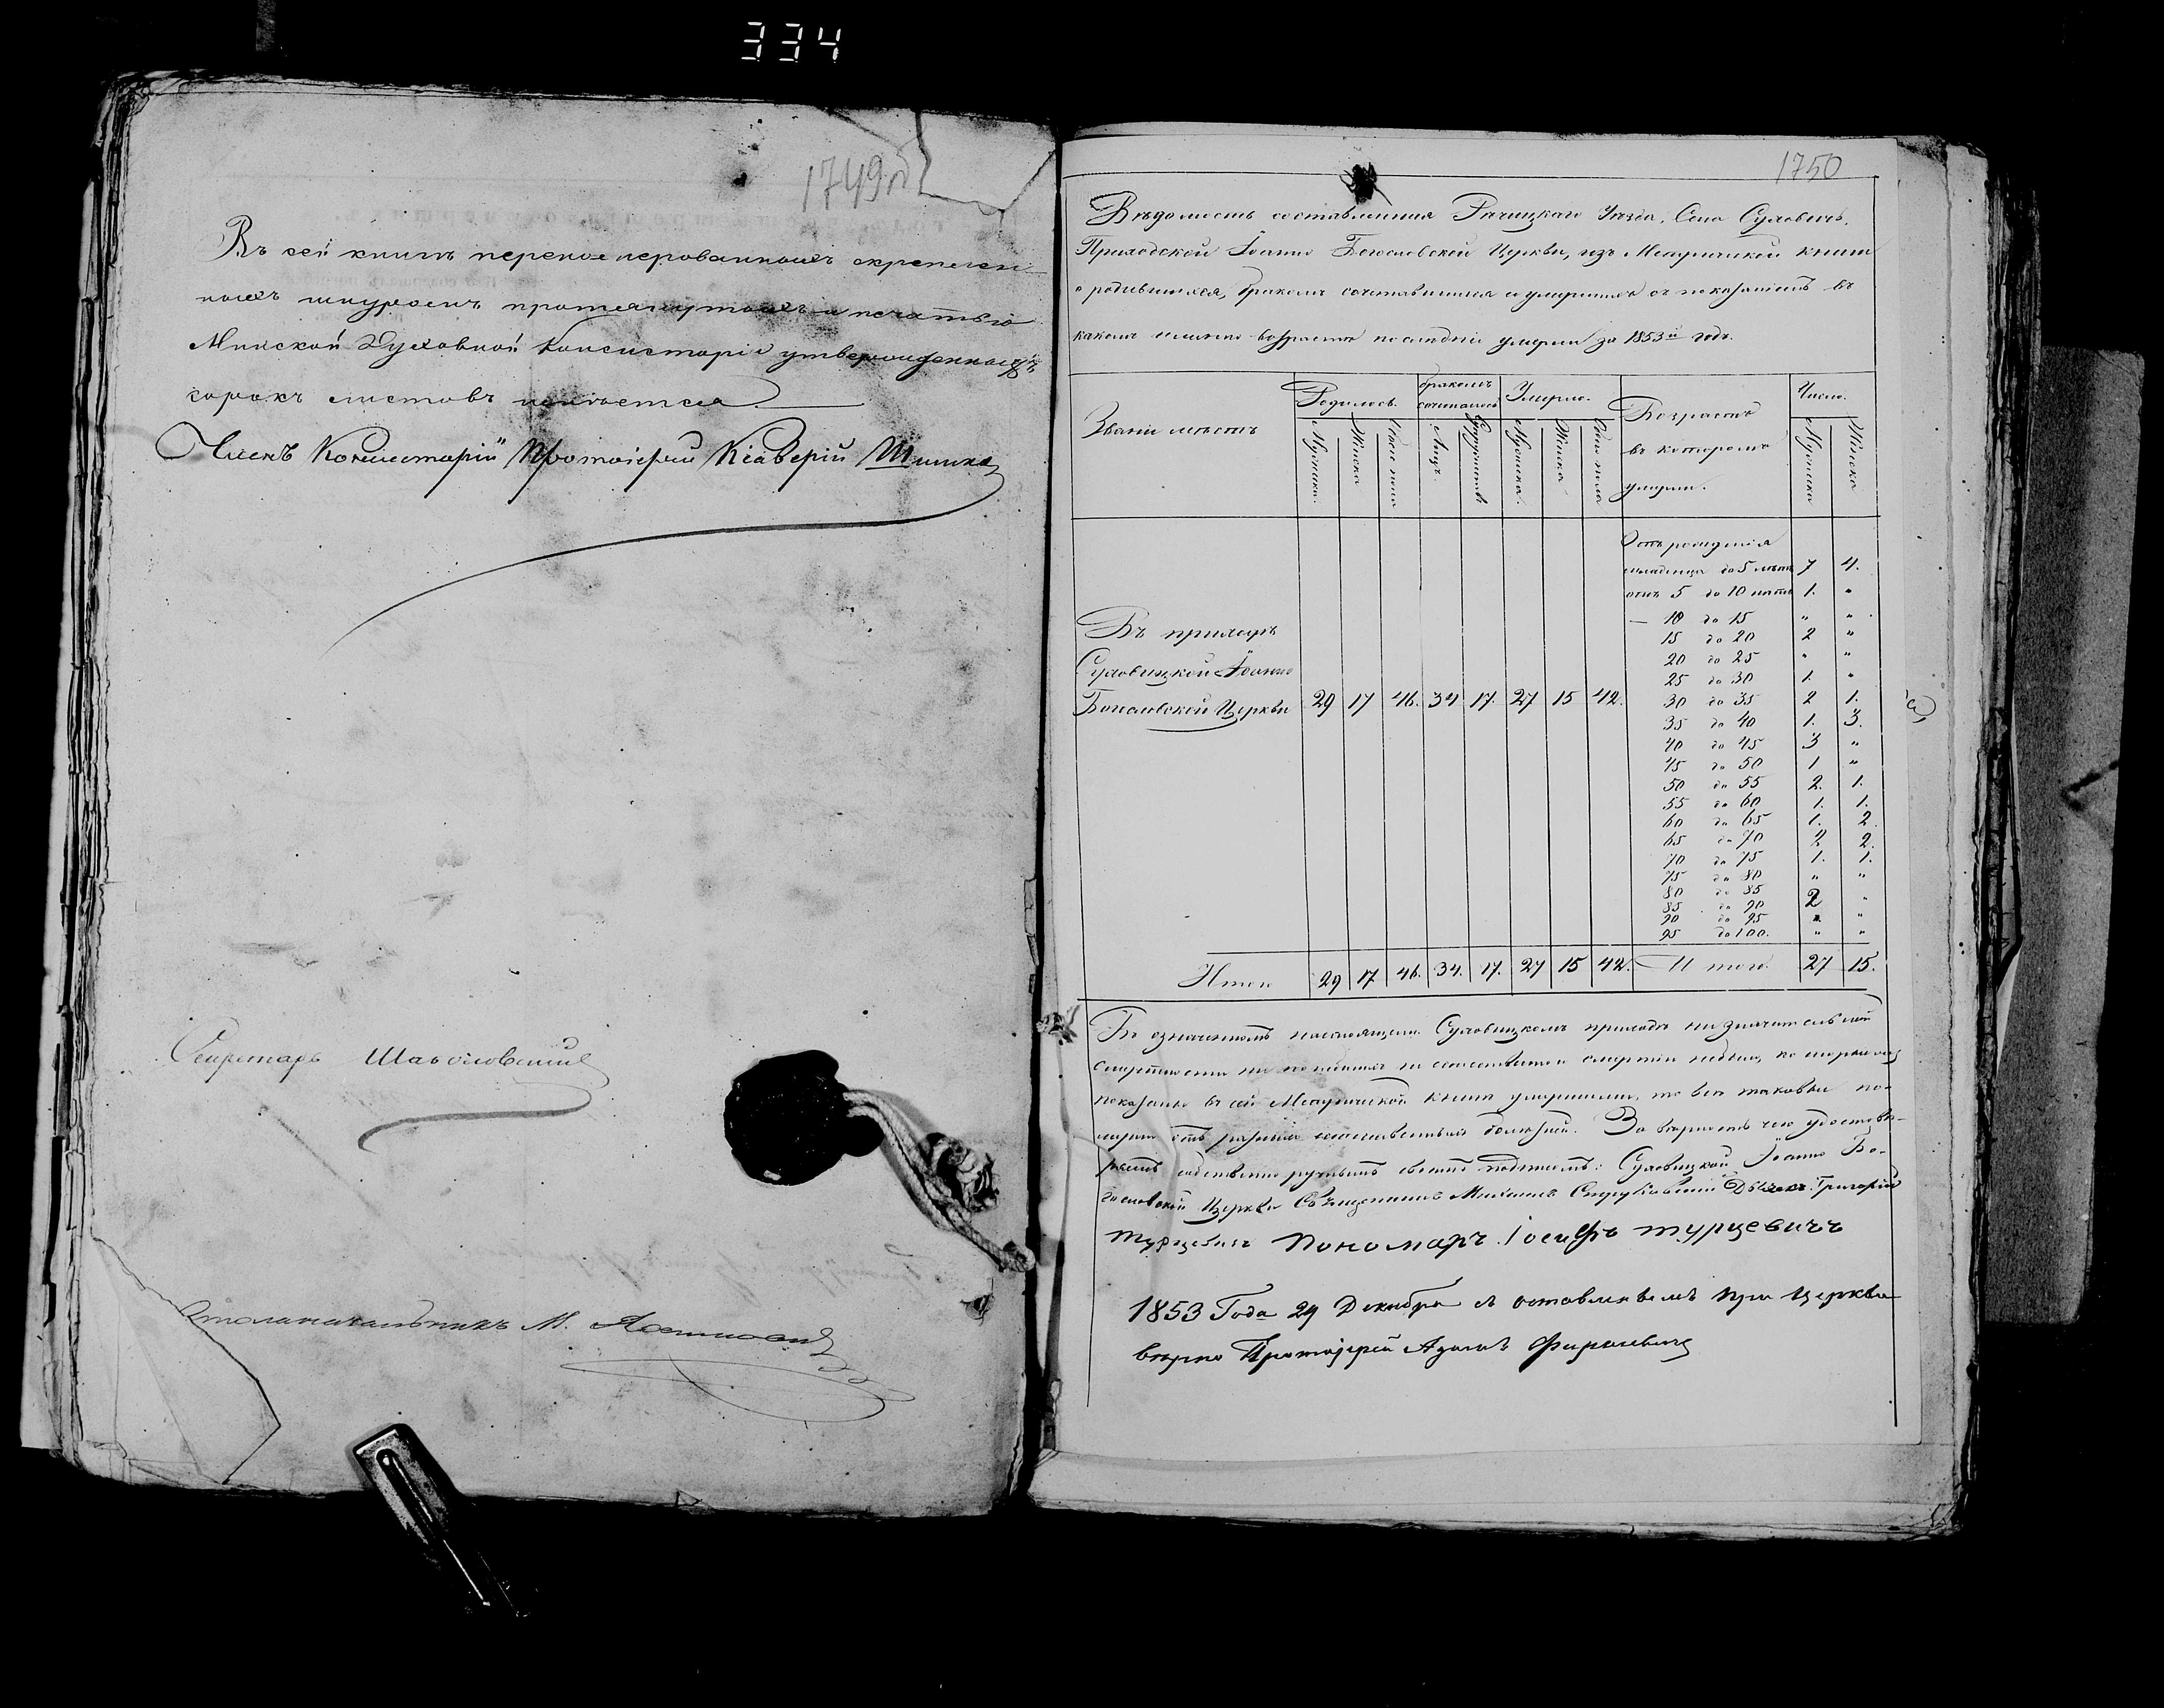 334
1749об
Въ сей книгѣ перенумерованныхъ скрепленныхъ
шнуромъ протянутымъ и печатью
Минской Духовной Консисторіи утвержденныхъ
сорокъ листовъ имѣется
Членъ Консисторіи Протоіерей Ксаверій Шишка
Секретарь
Столоначальникъ М.
1750
Вѣдомость составленная Рѣчицкаго Уѣзда, Села Суховичъ,
Приходской Іоанно Богословской Церкви, изъ Метрической книги
о родившихся, бракомъ сочетавшихся и умершихъ съ показаніемъ въ
какомъ именно возрастѣ послѣдніе умерли за 1853й годъ.
Званіе мѣстъ
Родилось.
бракомъ сочеталось
Умерло.
Возрастъ въ которомъ умерли.
Число.
Мужска.
Женска
Обоего пола
Лицъ.
Супружествъ
Мужска
Женска
Обоего пола
Мужска
Женска
Отъ рожденія
младенца до 5 лѣтъ 7 4.
отъ 5 до 10 лѣтъ 1. "
— 10 до 15 " "
15 до 20 2 "
20 до 25 " "
25 до 30 1. "
Въ приходѣ
Суховицкой Іоанно
Богословской Церкви 29 17 46. 34 17. 27 15 42.
30 до 35 2 1.
35 до 40 1. 3.
40 до 45 3 "
45 до 50 1 "
50 до 55 2. 1.
55 до 60 1. 1.
60 до 65 1. 2.
65 до 70 2 2.
70 до 75 1. 1.
75 до 80 " "
80 до 85
85 до 90 2 "
90 до 95 " "
95 до 100. " "
Итого 29 17 46. 34. 17. 27 15 42. Итого. 27 15.
Въ означенномъ настоящемъ Суховицкомъ приходѣ незначительной
смертности
показано въ сей Метрической книгѣ умершими, то всѣ таковые по-
мерли отъ разныхъ естественныхъ болѣзней. Въ вѣрности чего удостовѣ-
ряемъ собственноручнымъ своимъ подписомъ: Суховицкой Іоанно Бо-
гословской Церкви Священникъ Михаилъ Дьячекъ Григорій
Турцевичъ Пономаръ Іосифъ Турцевичъ
1853 Года 29 Декабря съ оставленнымъ при Церкви
вѣрно Протоіерей Адамъ